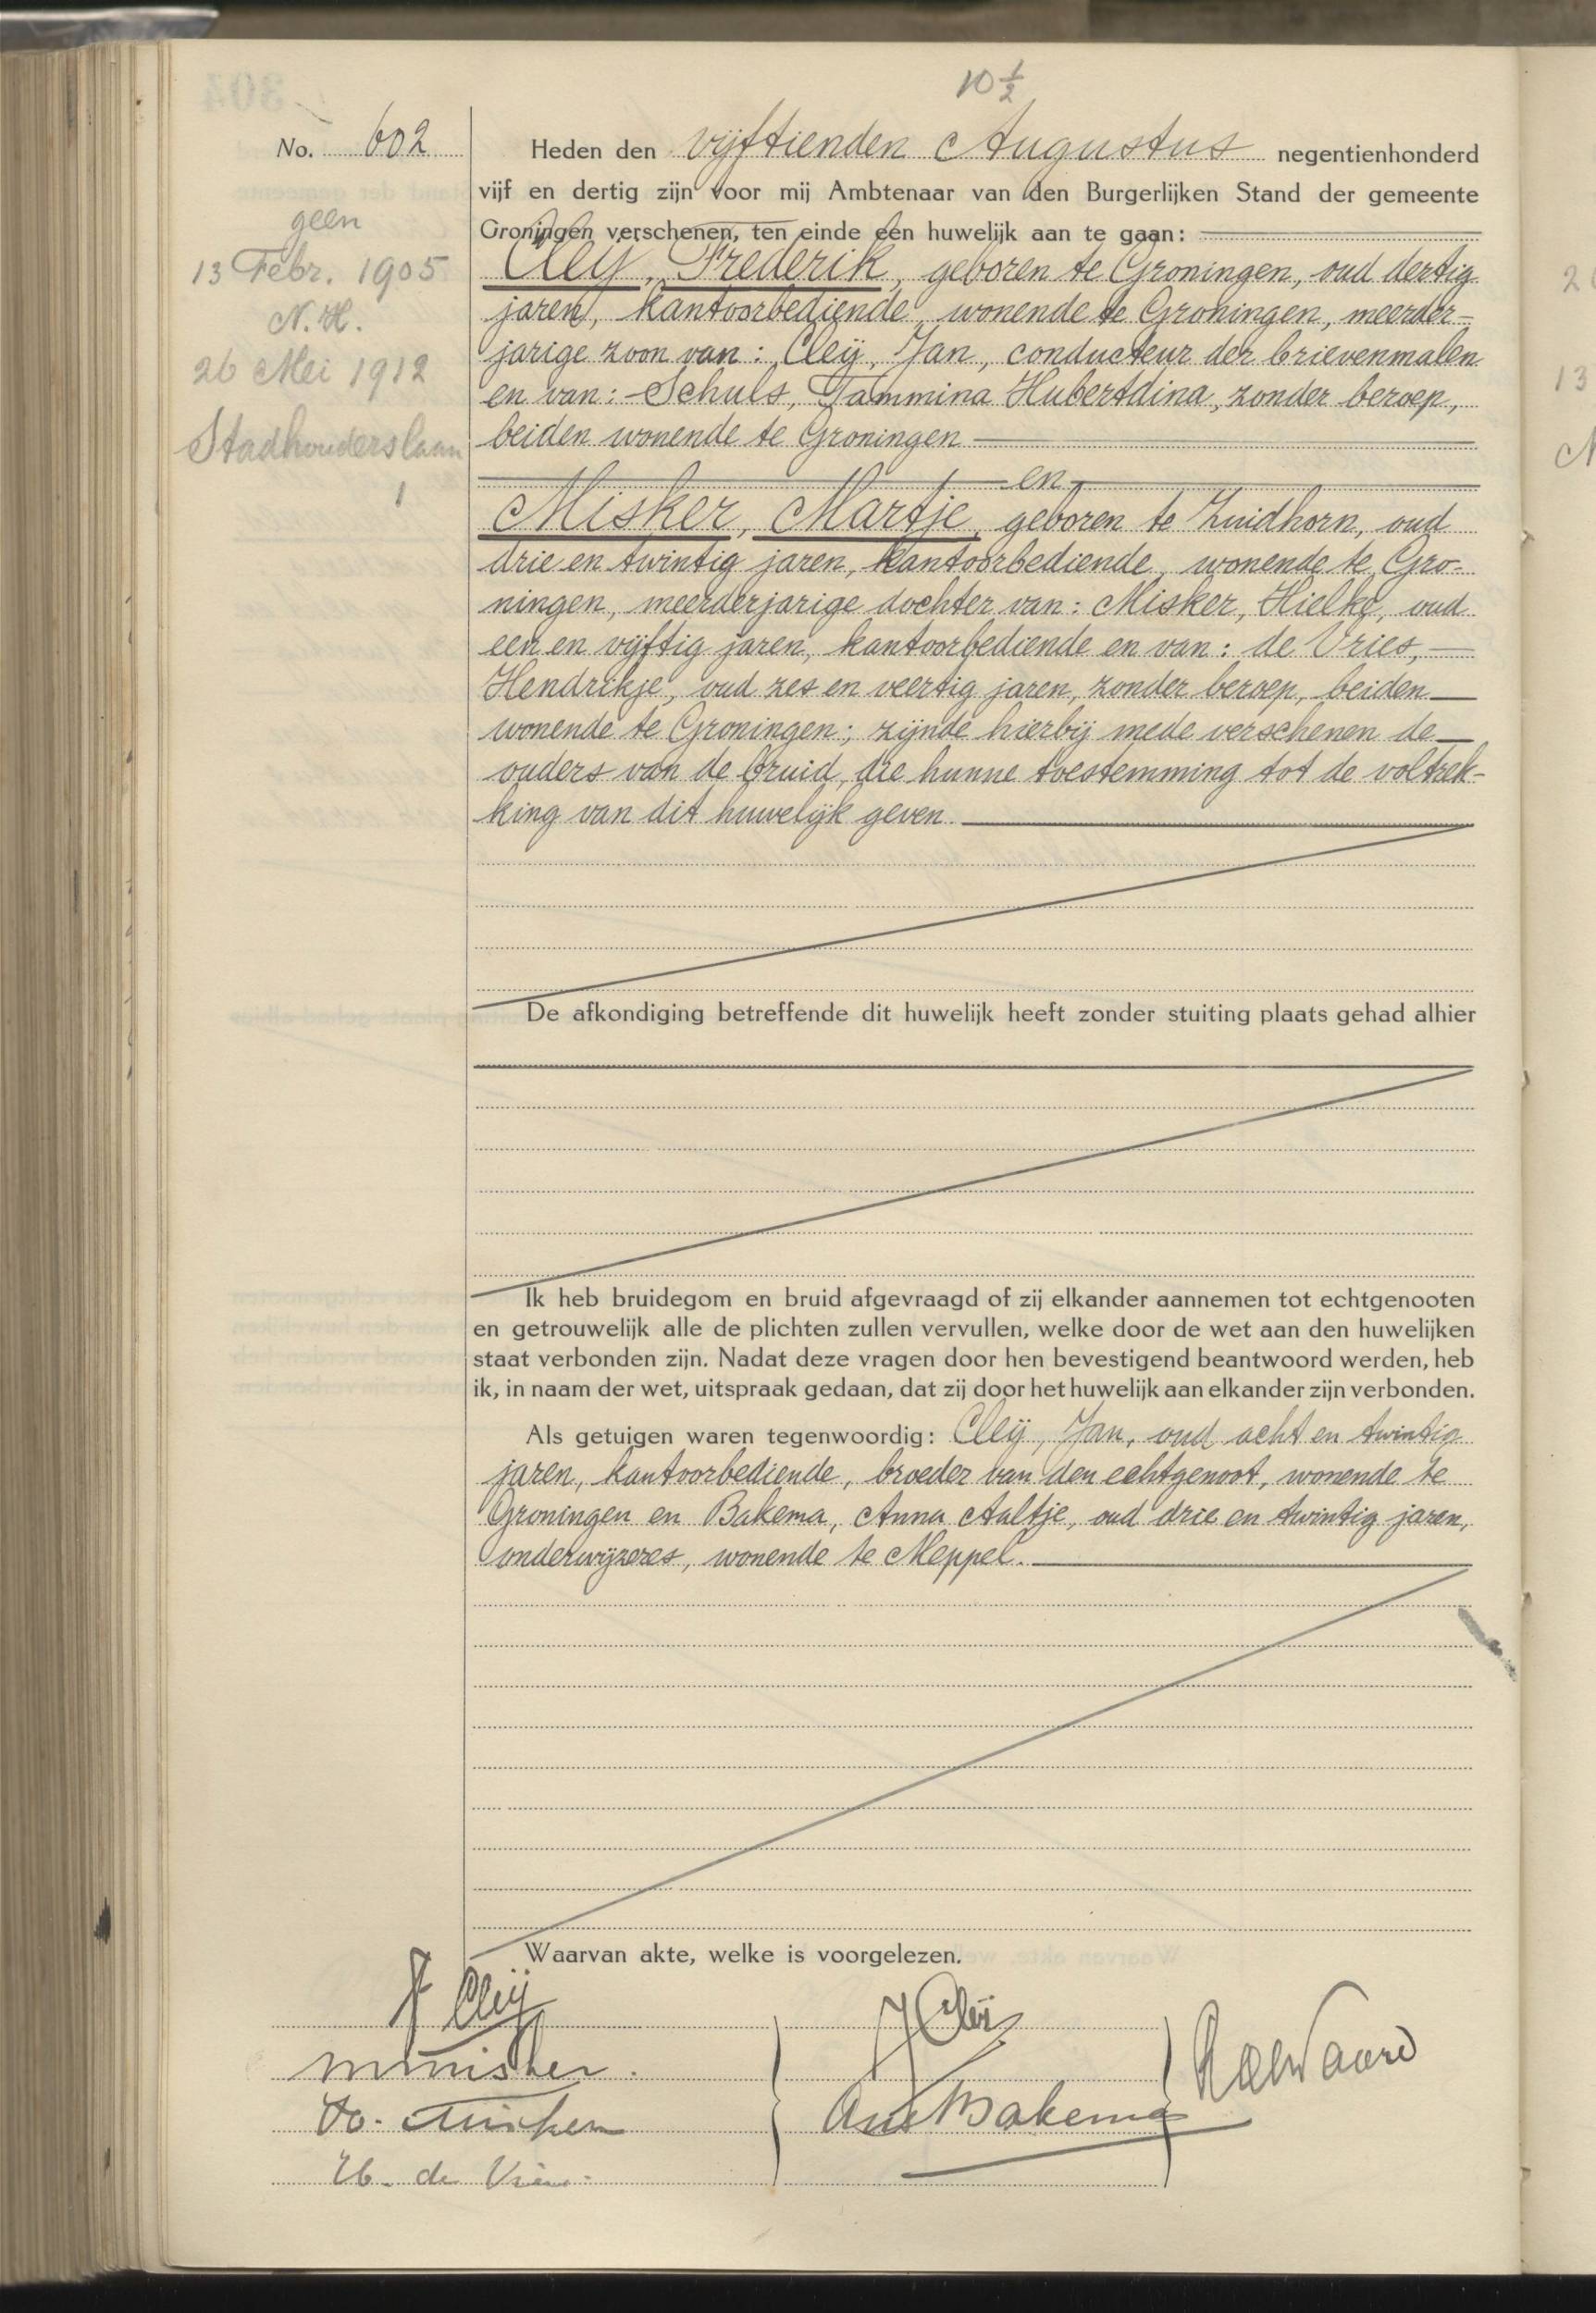 10 ½
No. 602
geen
13 Febr. 1905
N. H.
26 Mei 1912
Stadhouderslaan
1
Heden den vijftienden Augustus negentienhonderd
vijf en dertig zijn voor mij Ambtenaar van den Burgerlijken Stand der gemeente
Groningen verschenen, ten einde een huwelijk aan te gaan:
Cleij, Frederik, geboren te Groningen, oud dertig
jaren, kantoorbediende, wonende te Groningen, meerder-
jarige zoon van: Cleij, Jan, conducteur der brievenmalen
en van: Schuls, Tammina Hubertdina, zonder beroep,
beiden wonende te Groningen
en
Misker, Martje, geboren te Zuidhorn, oud
drie en twintig jaren, kantoorbediende, wonende te Gro-
ningen, meerderjarige dochter van: Misker, Hielke, oud
een en vijftig jaren, kantoorbediende en van: de Vries,
Hendrikje, oud zes en veertig jaren, zonder beroep, beiden
wonende te Groningen; zijnde hierbij mede verschenen de
ouders van de bruid, die hunne toestemming tot de voltrek-
king van dit huwelijk geven.
De afkondiging betreffende dit huwelijk heeft zonder stuiting plaats gehad alhier
Ik heb bruidegom en bruid afgevraagd of zij elkander aannemen tot echtgenooten
en getrouwelijk alle de plichten zullen vervullen, welke door de wet aan den huwelijken
staat verbonden zijn. Nadat deze vragen door hen bevestigend beantwoord werden, heb
ik, in naam der wet, uitspraak gedaan, dat zij door het huwelijk aan elkander zijn verbonden.
Als getuigen waren tegenwoordig: Cleij, Jan, oud acht en twintig
jaren, kantoorbediende, broeder van den echtgenoot, wonende te
Groningen en Bakema, Anna Aaltje, oud drie en twintig jaren,
onderwijzeres, wonende te Meppel.
Waarvan akte, welke is voorgelezen.
F Cleij
M Misker.
H. Misker
H. de Vries
J Cleij
Ana Bakema